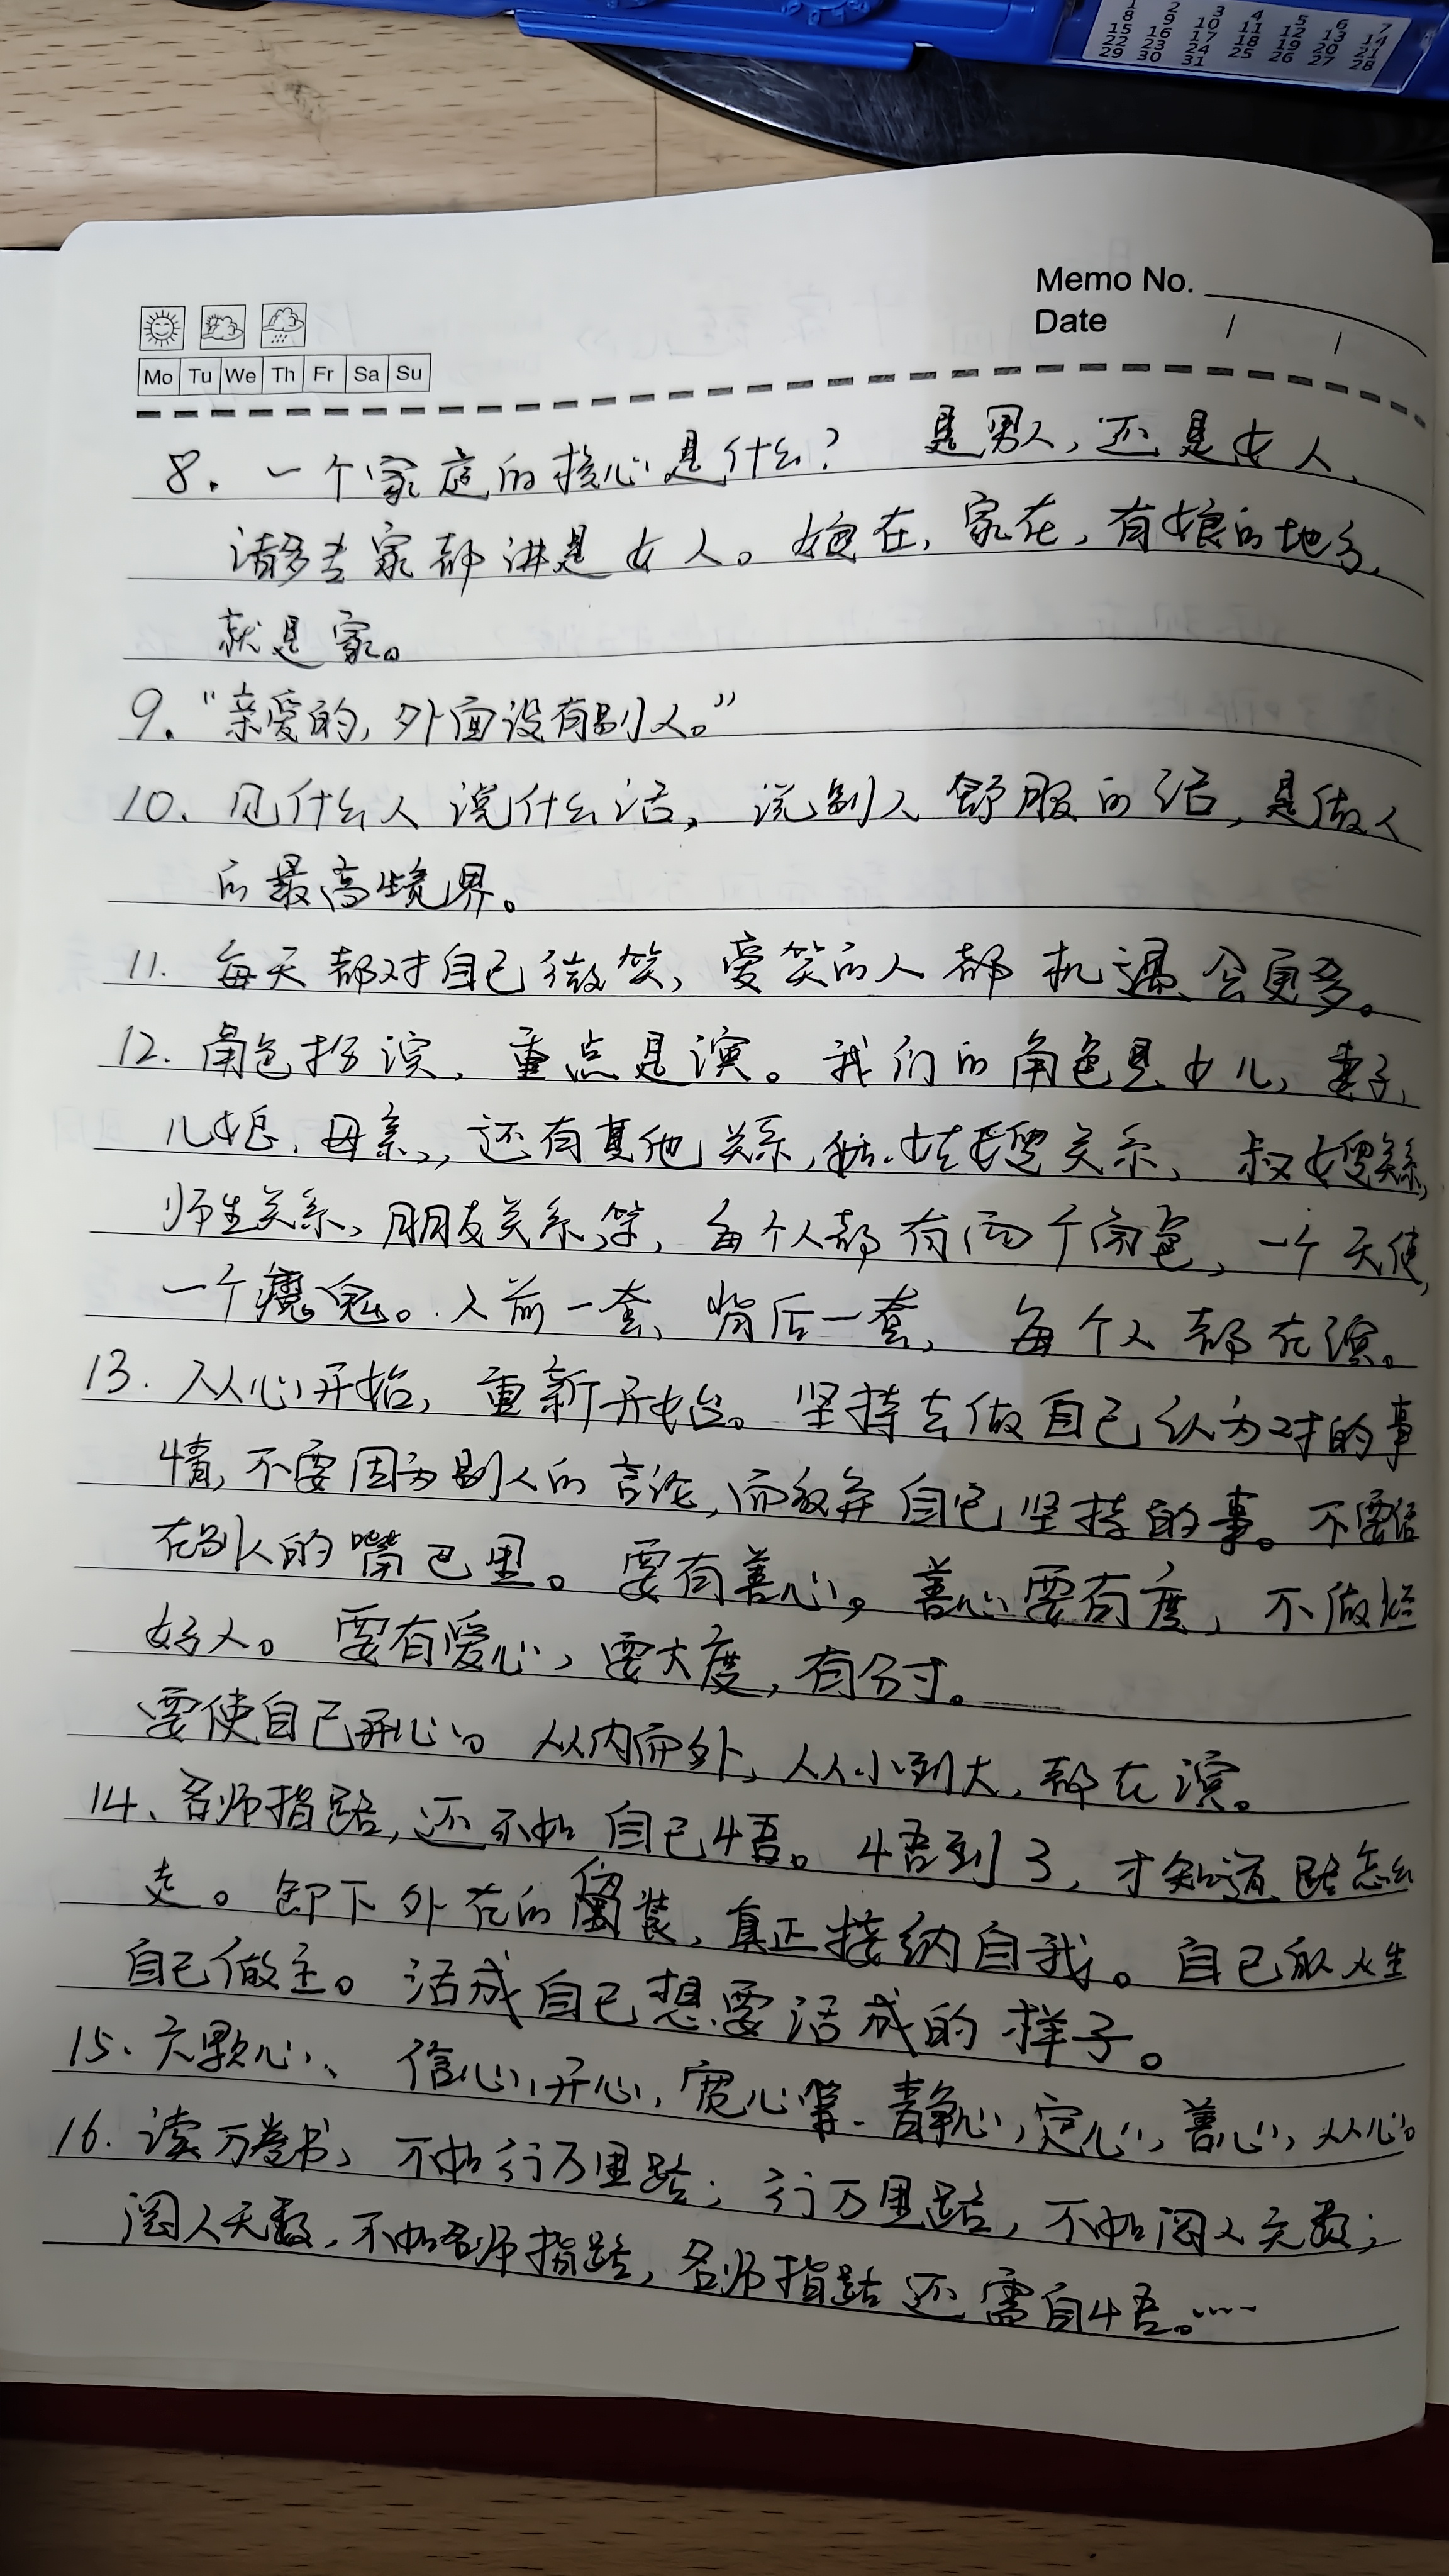 1 2 3 4 5 6 7
8 9 10 11 12 13 14
15 16 17 18 19 20 21
22 23 24 25 26 27 28
29 30 31
Memo No.
Date / /
Mo Tu We Th Fr Sa Su
8. 一个家庭的核心是什么? 是男人,还是女人、
请多专家都讲是女人。娘在,家在,有娘的地方,
就是家。
9. “亲爱的,外面没有别人。”
10. 见什么人说什么话,说别人舒服的话,是做人
的最高境界。
11. 每天都对自己微笑,爱笑的人都机遇会更多。
12. 角色扮演,重点是演。我们的角色是女儿,妻子,
儿媳,母亲,还有其他关系,姑嫂关系、叔嫂关系,
师生关系、朋友关系等,每个人都有两个角色,一个天使,
一个魔鬼。人前一套、背后一套,每个人都在演。
13. 从心开始,重新开始。坚持去做自己认为对的事
情,不要因为别人的言论,而放弃自己坚持的事。不要活
在别人的嘴巴里。要有善心。善心要有度,不做烂
好人。要有爱心,要大度,有分寸。
要使自己开心。从内而外,从小到大,都在演。
14、名师指路,还不如自己悟。悟到了,才知道路怎么
走。卸下外在的伪装,真正接纳自我。自己的人生
自己做主。活成自己想要活成的样子。
15、六颗心、信心,开心,宽心等、静心,定心,善心,从心。
16. 读万卷书,不如行万里路;行万里路,不如阅人无数;
阅人无数,不如名师指路,名师指路还需自悟。……